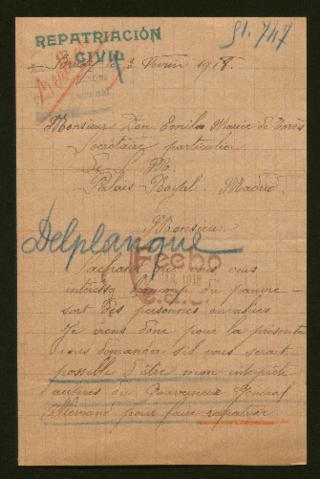 REPATRIACIÓN
CIVIL
91.747
le 3 Février 1918.
Monsieur Don Emilio Maria de Torres
Secrétaire particulier
de S M
Palais Royal. Madrid
Monsieur
Delplanque
Sachant que vous vous
intéressez beaucoup du pauvre
sort des personnes envahies
Je viens donc pour la présente
vous demander s'il vous serait
possible d'être mon interprète
auprès du Gouverneur Général
Allemand pour faire rapatrier